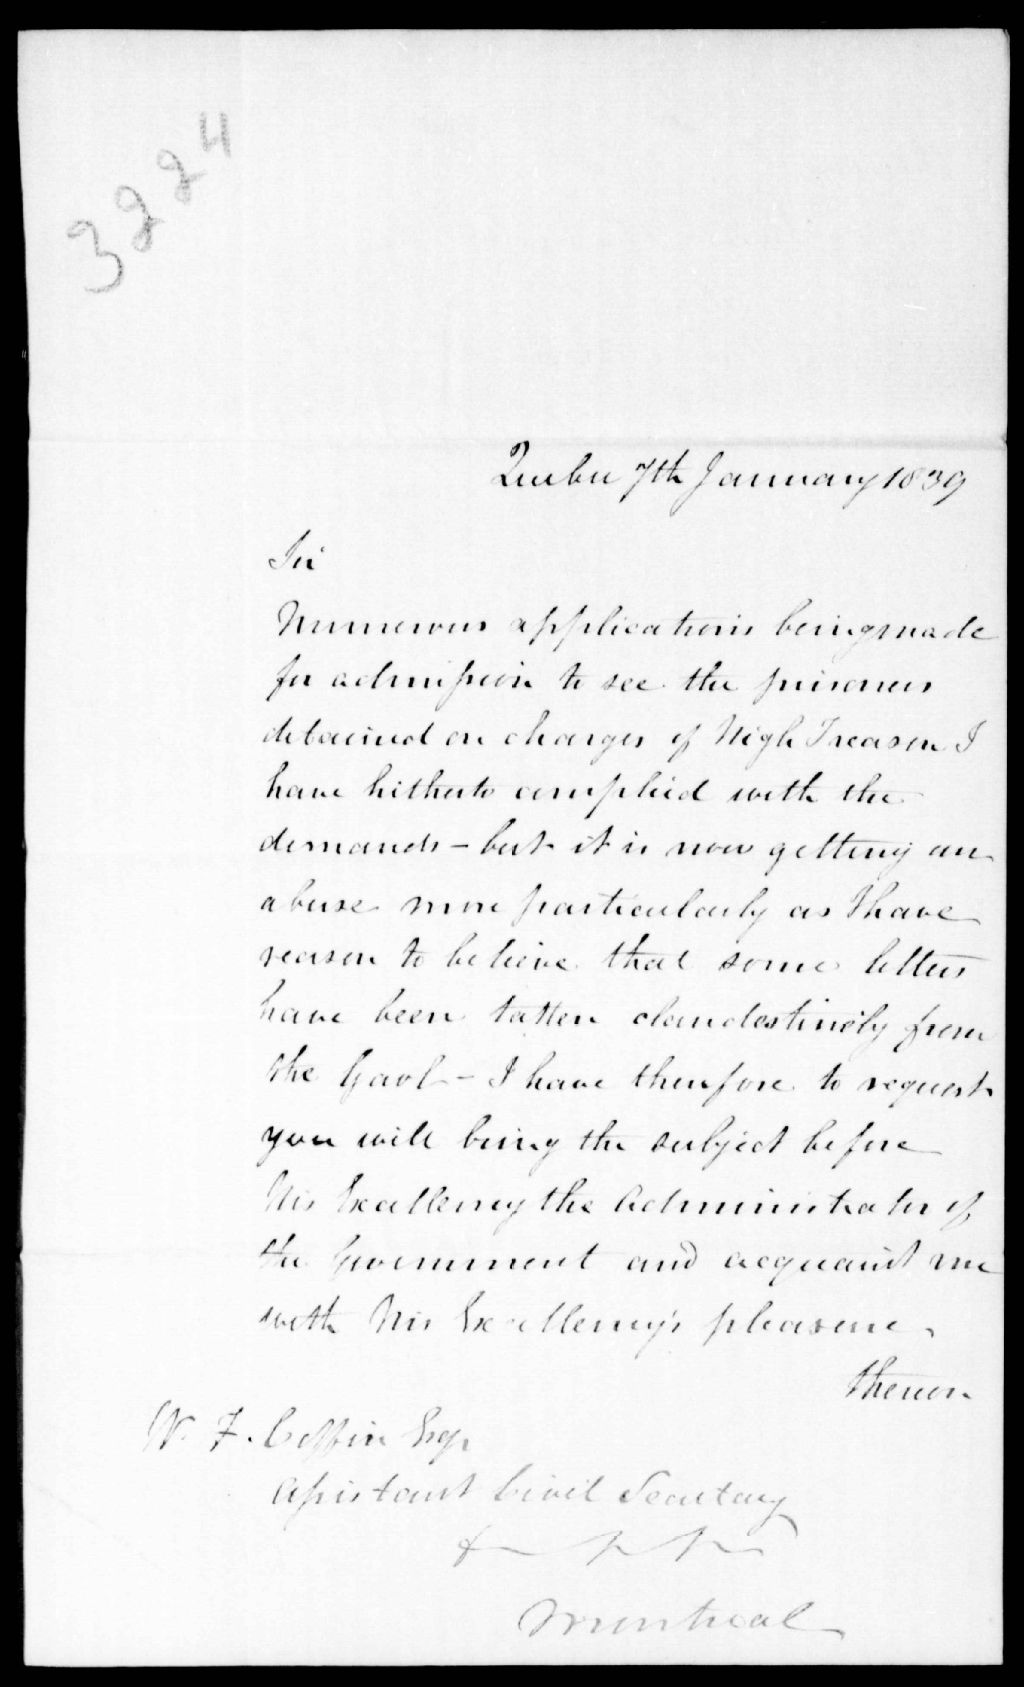 3224
Quebec 7th January 1839
Sir
Numerous applications being made
for admission to see the prisoners
detained on charges of High Treason I
have hitherto complied with the
demands – but it is now getting an
abuse more particularly as I have
reason to believe that some letters
have been taken clandestinely from
the Gaol – I have therefore to request
you will bring the subject before
His Excellency the Administrator of
the Government and acquaint me
with His Excellency's pleasure
thereon
W. F. Coffin Esqr
Assistant Civil Secretary
Montreal